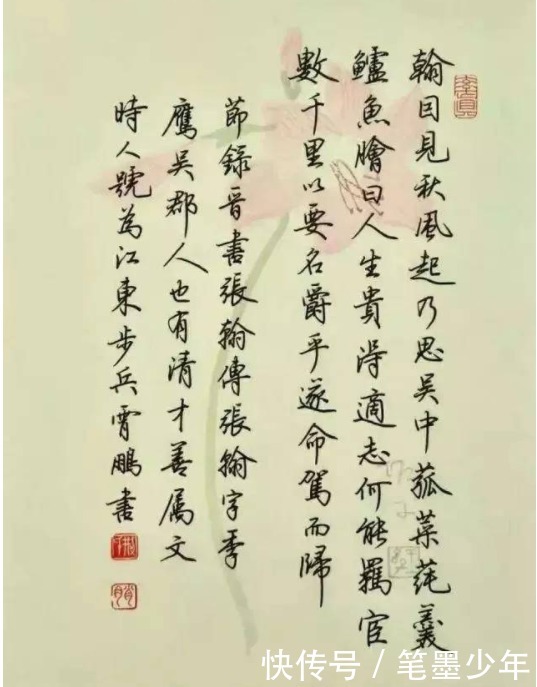 翰因見秋風起乃思吳中菰菜莼羹
鱸魚膾曰人生貴得適志何能羈宦
數千里以要名爵乎遂命駕而歸
節錄晉書張翰傳張翰字季
鷹吳郡人也有清才善属文
時人號為江東步兵霄鵬書
快传号 / 笔墨少年